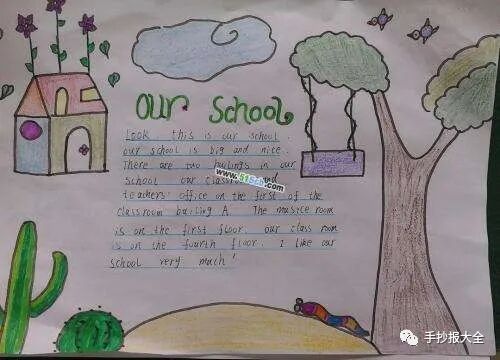 our school
Look. this is our school.
our school is big and nice.
There are two builings in our
school our classroom and
teachers' office on the first of the
classroom builing A The musice room
is on the first floor. our class room
is on the fourth floor. I like our
school very much!
www.51sch.com
手抄报大全